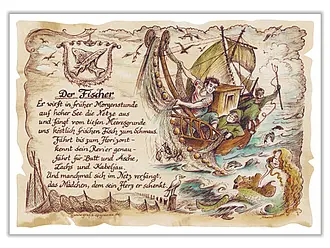 Der Fischer
Er wirft in früher Morgenstunde
auf hoher See die Netze aus
und fängt vom tiefen Meeresgrunde
uns köstlich frischen Fisch zum Schmaus.
Fährt bis zum Horizont -
kennt sein Revier genau -
fährt für Butt und Äsche,
Lachs und Kabeljau.
Und manchmal sich im Netz verfängt,
das Mädchen, dem sein Herz er schenkt.